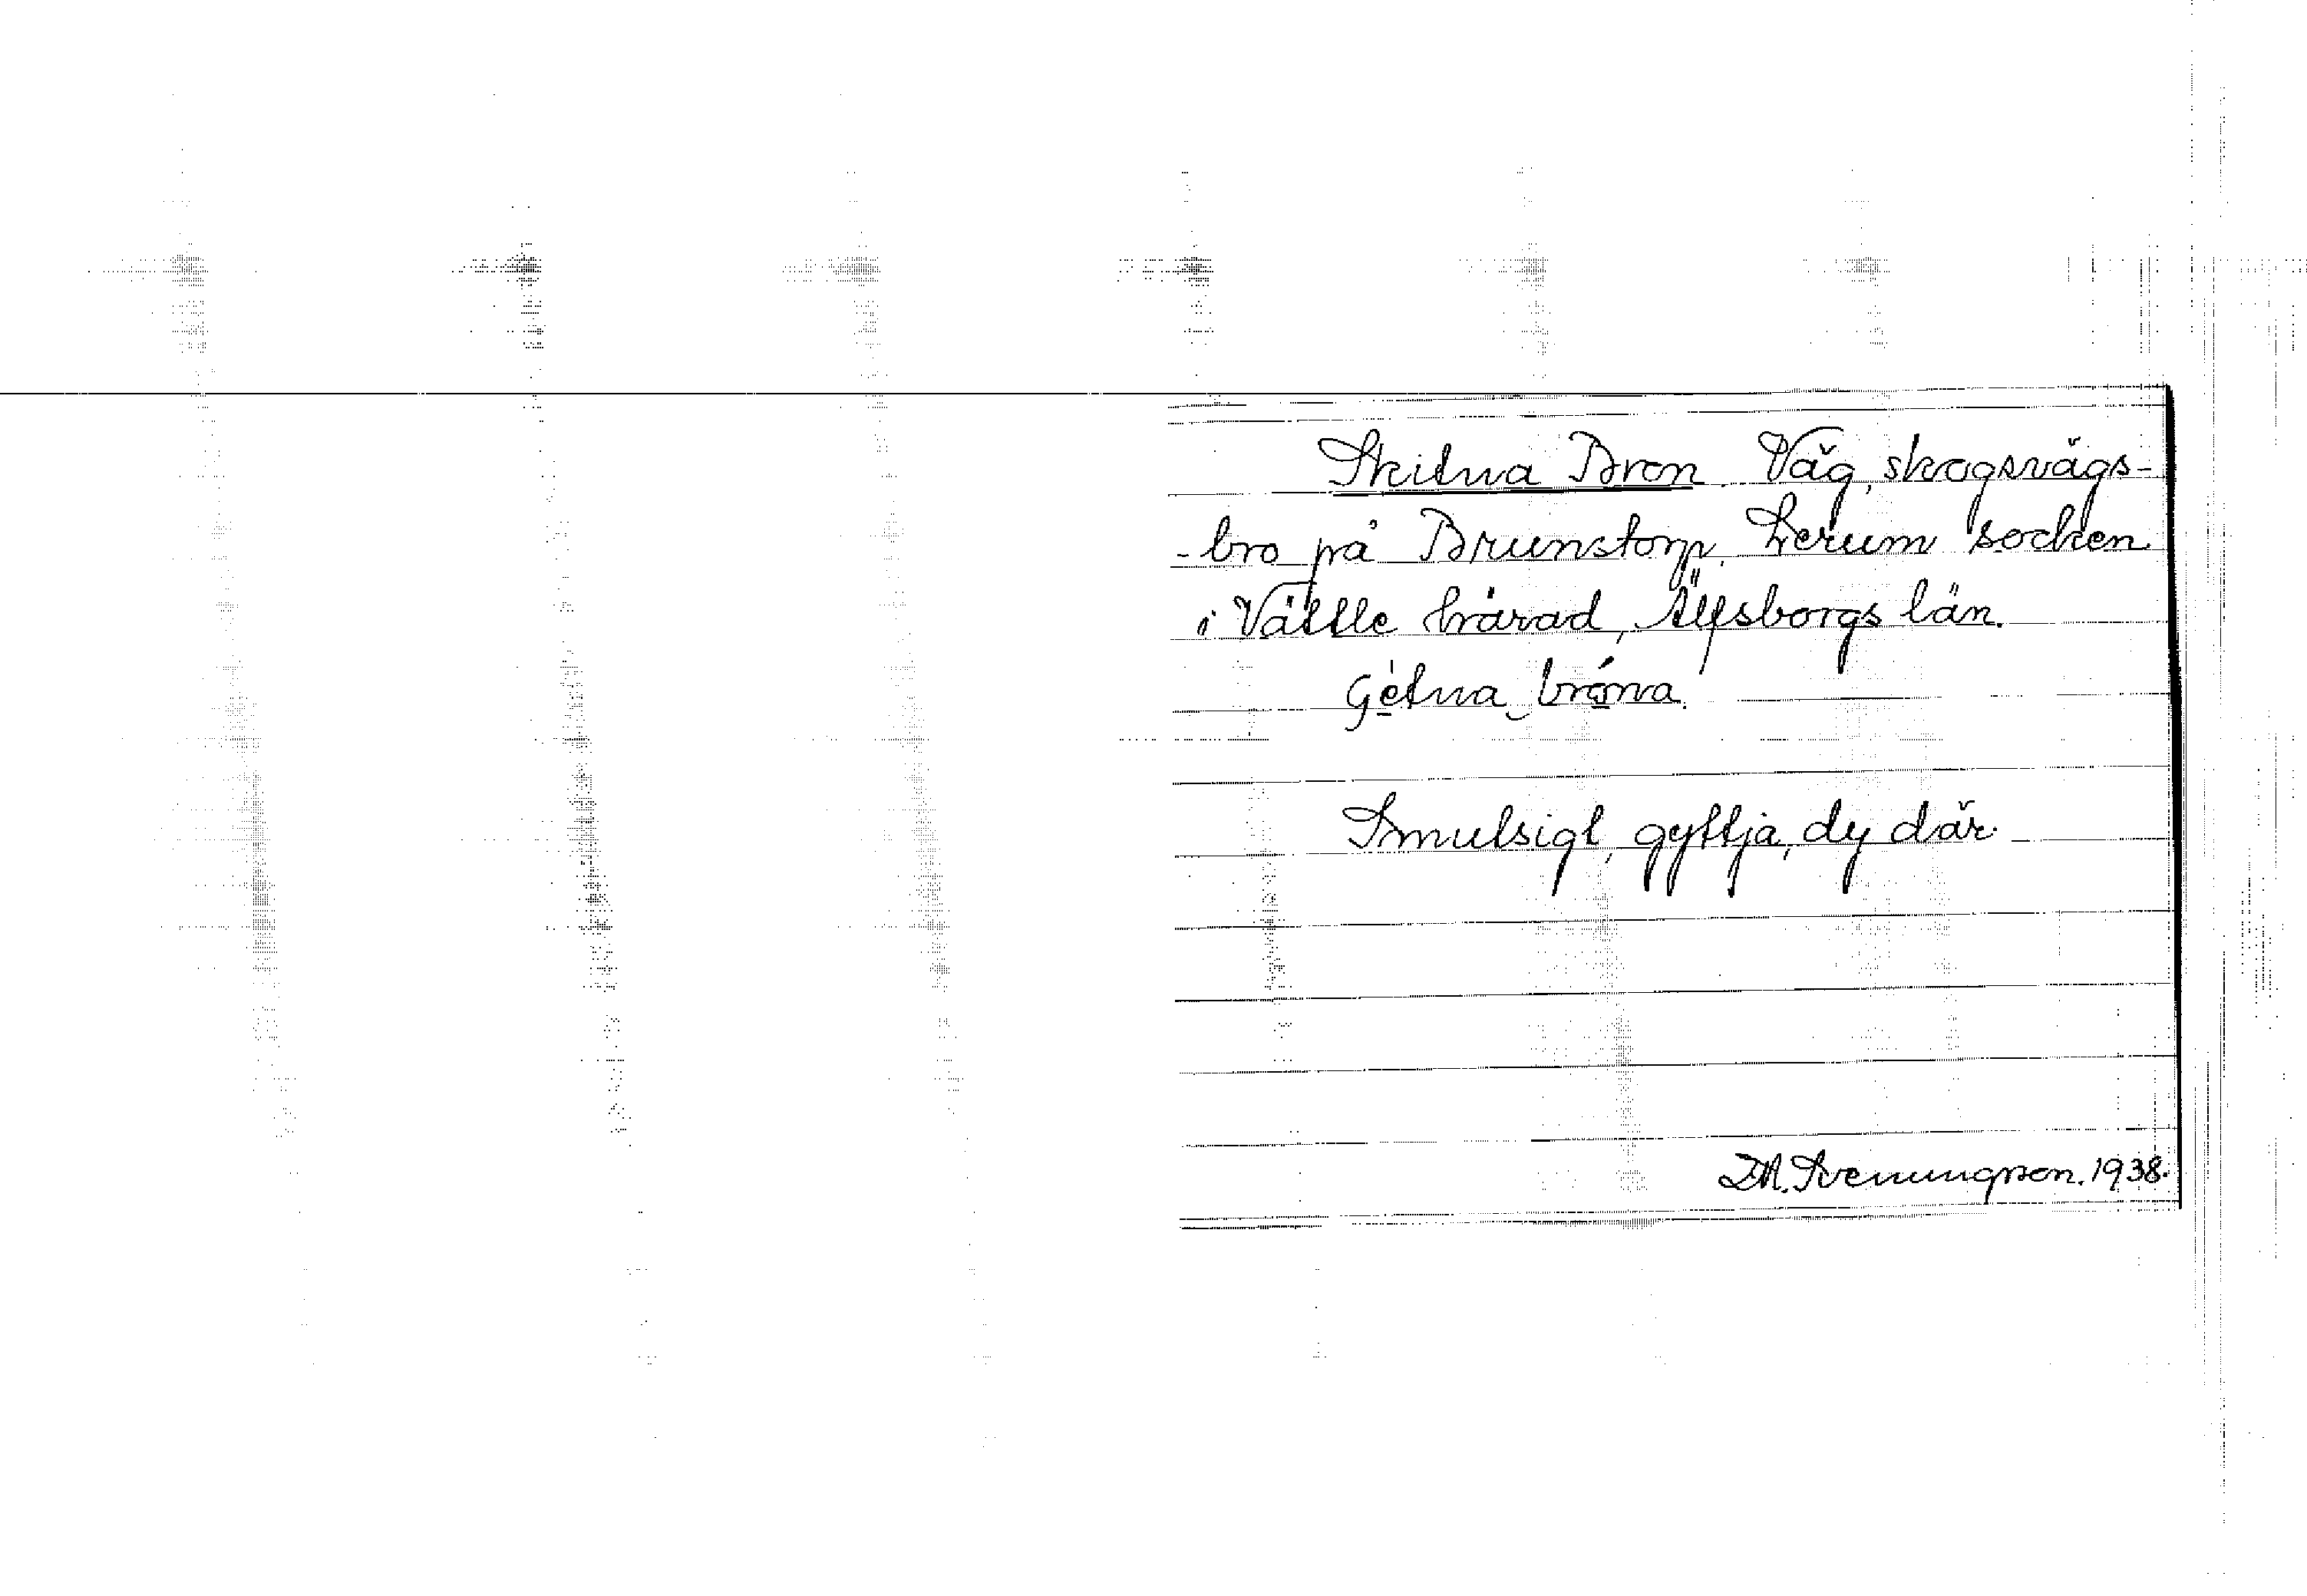 Skitna Bron. Väg, skogsvägs-
-bro på Brunstorp, Lerum socken
i Vättle härad, Älfsborgs län.
Smutsigt, gyttja, dy där.
1938.